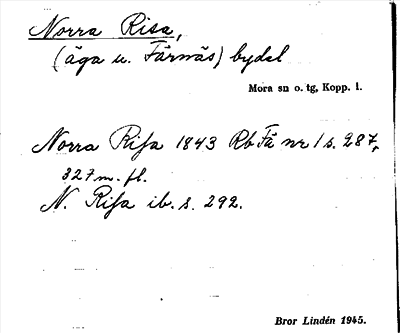 Norra Risa,
(äga u. Färnäs) bydel
Mora sn o. tg, Kopp. l.
Norra Risa 1843 Rb Fä nr 1 s. 287,
327 m. fl.
N. Risa ib. s. 292.
Bror Lindén 1945.